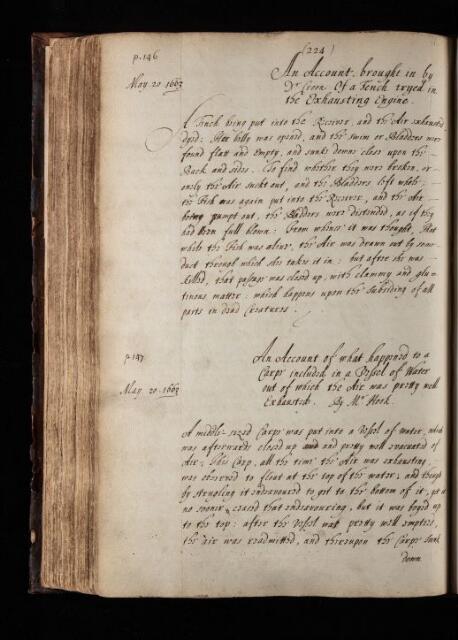 (224)
p. 146
May. 20. 1663
An Account brought in by
Dr Croon Of a Tench tryed in
the Exhausting Engine.
A Tench being put into the Receiver, and the Air exhausted
dyed: Her belly was opened, and the swim or Bladders were
found flatt and empty, and sunke downe close upon the
Back and sides. To find whether they were broken, or
only the Air suckt out, and the Bladders left whole,
the Fish was again put into the Receiver, and the Air
being pumpt out, the Bladders were distended, as if they
had been full blown: From whence it was thought, that
while the Fish was alive, the Air was drawn out by some
duct through which she takes it in: but after she was
killed, that passage was closed up, with clammy and glu-
tinous matter: which happens upon the subsiding of all
parts in dead Creatures.
p. 147
May 20. 1663
An Account of what happened to a
Carpe included in a Vessel of Water
out of which the Air was pretty well
Exhausted. By Mr Hook.
A middle-sized Carpe was put into a Vessel of water, which
was afterwards closed up and pretty well evacuated of
Air; This Carp, all the time the Air was exhausting,
was observed to float at the top of the water; and though
by strugling it endeavoured to get to the bottom of it,
no sooner ceased that endeavouring, but it was boyed up
to the top: after the Vessel was pretty well emptied,
the air was readmitted, and thereupon the Carpe sunk
down